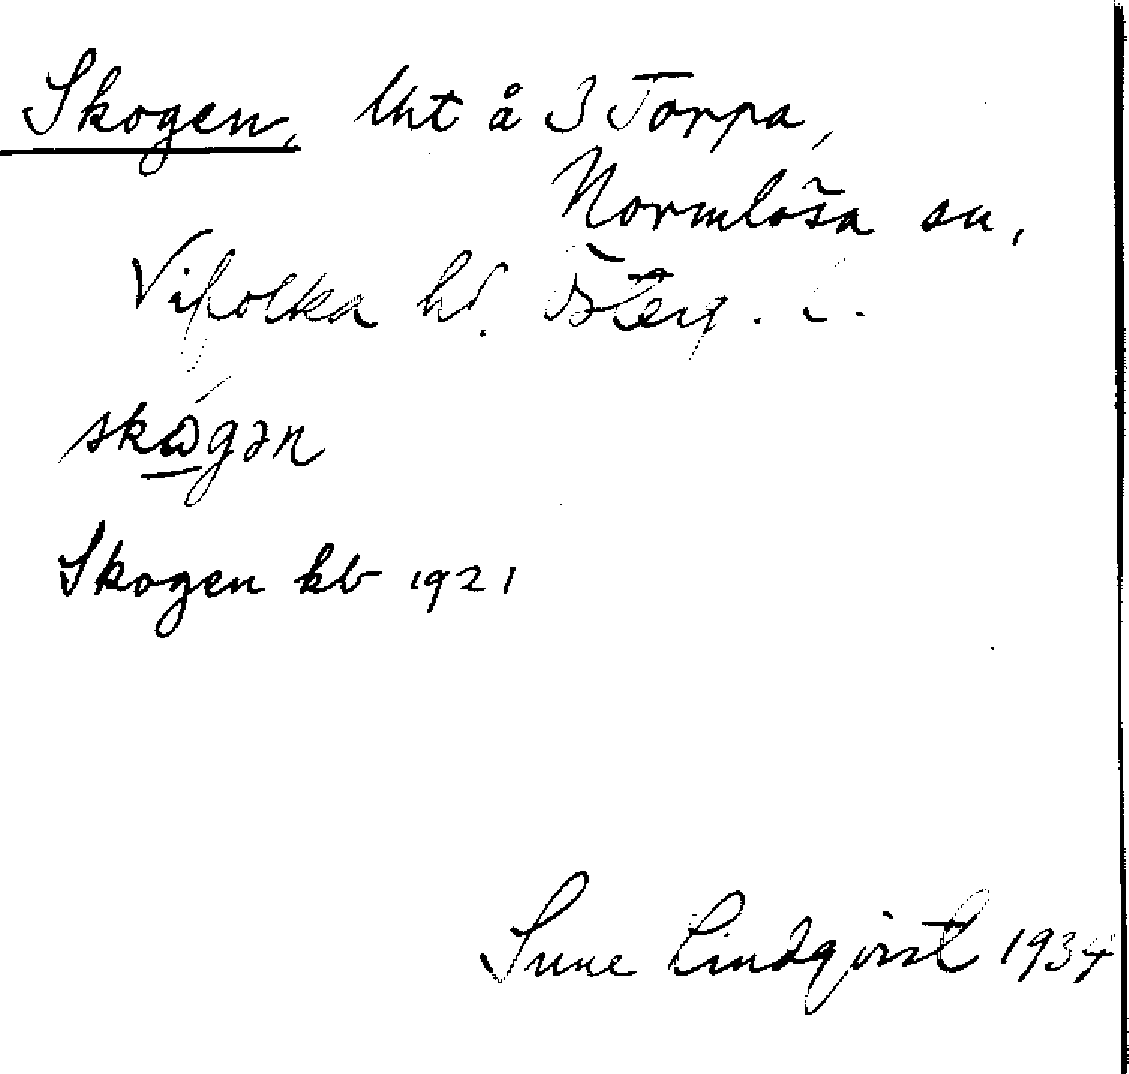 Skogen, lht å 3 Torpa,
Normlösa sn,
Vifolka hd. Österg. l.
skógən
Skogen kb 1921
Sune Lindqvist 1934